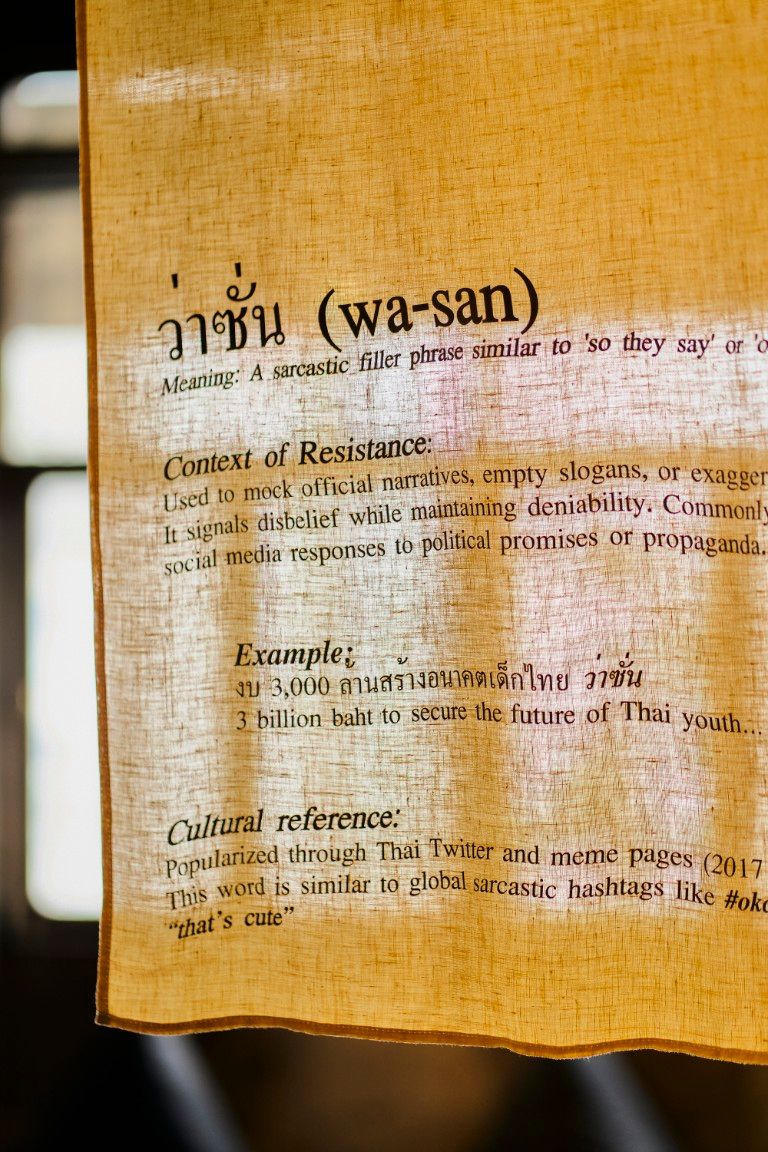 ว่าซั่น (wa-san)
Meaning: A sarcastic filler phrase similar to 'so they say' or
Context of Resistance:
Used to mock official narratives, empty slogans, or
It signals disbelief while maintaining deniability. Commonly
social media responses to political promises or propaganda.
Example:
งบ 3,000 ล้านสร้างอนาคตเด็กไทย ว่าซั่น
3 billion baht to secure the future of Thai youth...
Cultural reference:
Popularized through Thai Twitter and meme pages (2017
This word is similar to global sarcastic hashtags like
“that’s cute”